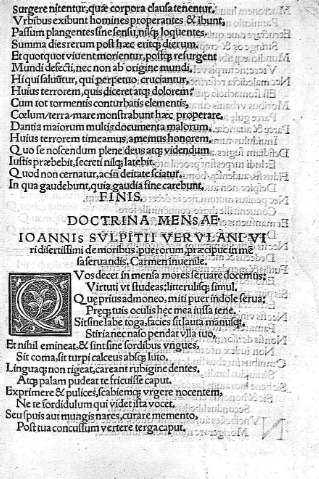 Surgere nitentur, quæ corpora clausa tenentur.
Vrbibus exibunt homines properantes & ibunt,
Passum plangentes sine sensu, nilsq; loquentes.
Summa dies rerum post hæc eritq; dierum.
Et quotquot viuent morientur, postq; resurgent
Mundi defecti, nec non ab origine mundi.
Hi qui saluātur, qui perpetuo cruciantur,
Huius terrorem, quis diceret atq; dolorem?
Cum tot tormentis conturbatis elementis,
Cœlum/terra-mare monstrabunt hæc properare,
Dantia maiorum multis documenta malorum,
Huius terrorem timeamus, amemus honorem,
Quo se noscendum plene deus atq; videndum
Iustis præbebit, secreti nilq; latebit.
Quod non cernatur, ac si deitate sciatur.
In qua gaudebunt, quia gaudia fine carebunt.
FINIS.
DOCTRINA MENSAE
IOANNIS SVLPITII VERVLANI VI
ri disertissimi de moribus puerorum, præcipue in mē
sa seruandis, Carmen iuuenile.
Quos decet in mensa mores seruare docemus;
Virtuti vt studeas; litterulisq; simul.
Que prius admoneo, miti puer indole serua;
Preq; tuis oculis hec mea iussa tene.
Sit sine labe toga, facies sit lauta manusq;,
Stiria nec naso pendat vlla tuo,
Et nihil emineat, & sint sine sordibus vngues,
Sit coma, sit turpi calceus absq; luto.
Linguaq; non rigeat, careant rubigine dentes,
Atq; palam pudeat te fricuisse caput.
Exprimere & pulices, scabiemq; vrgere nocentem,
Ne te sordidulum qui videt ista vocet.
Seu spuis aut mungis nares, curare memento,
Post tua concussum vertere terga caput.